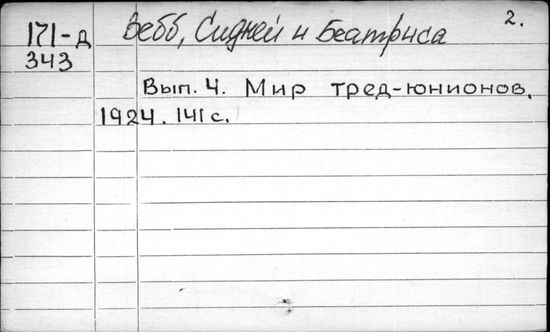 2.
171-д Вебб, Сидней и Беатриса
343
Вып. 4. Мир тред-юнионов.
1924. 141 с.